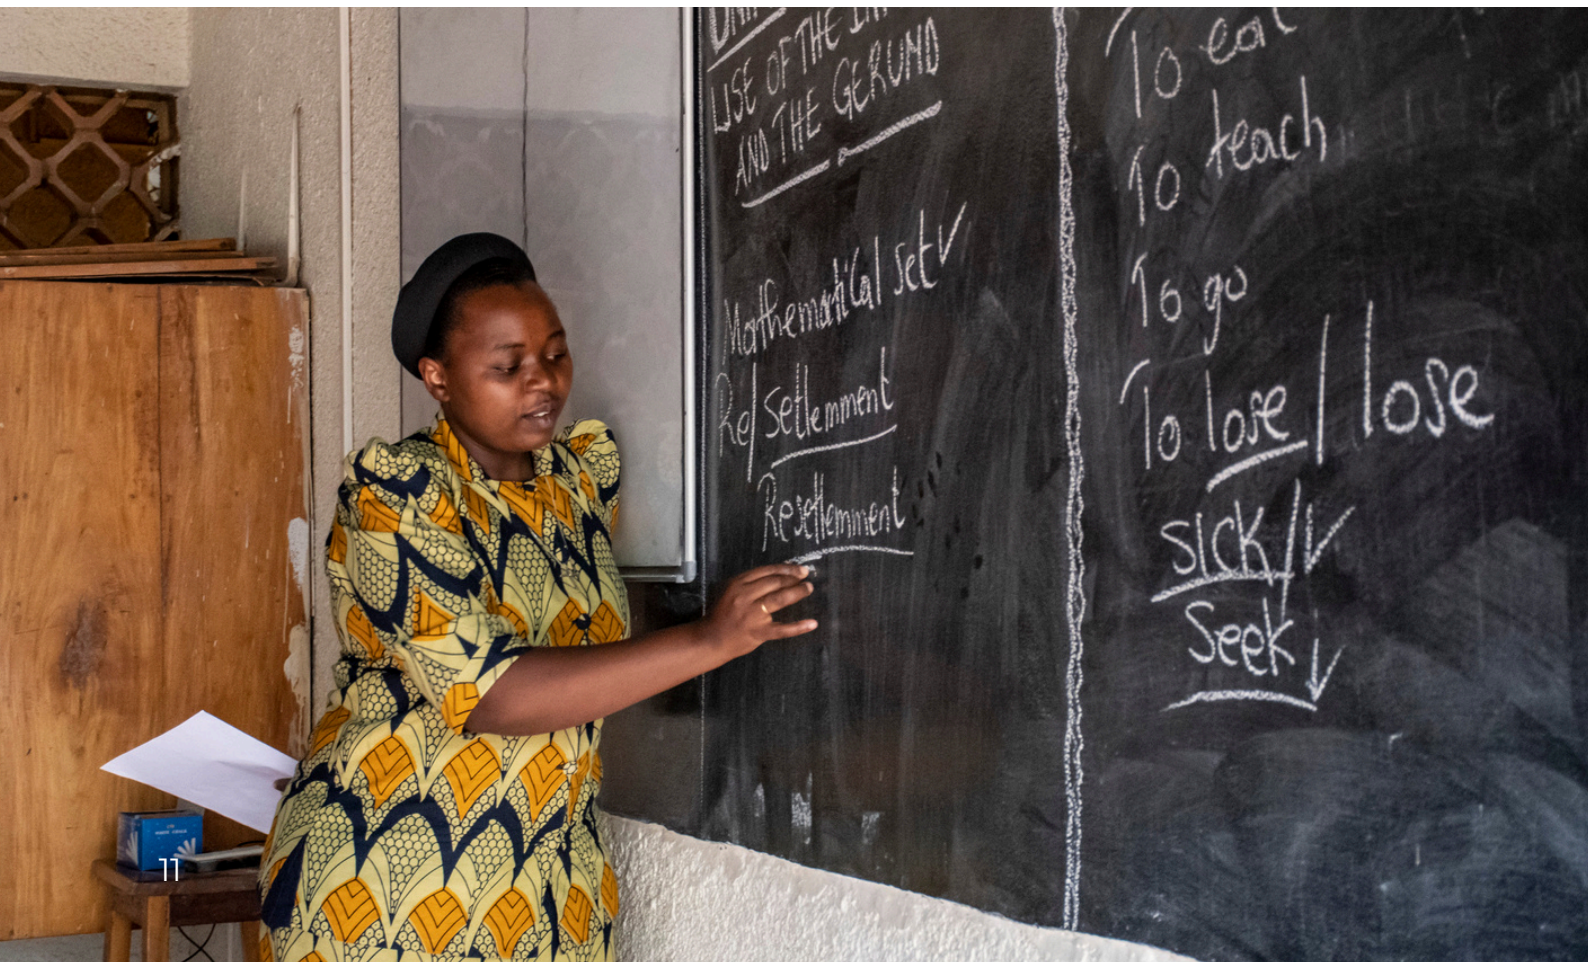 USE OF THE
AND THE GERUND
Mathematical set
Re/setlemment
Resetlemment
To eat
To teach
To go
To lose / lose
SICK/
Seek
11